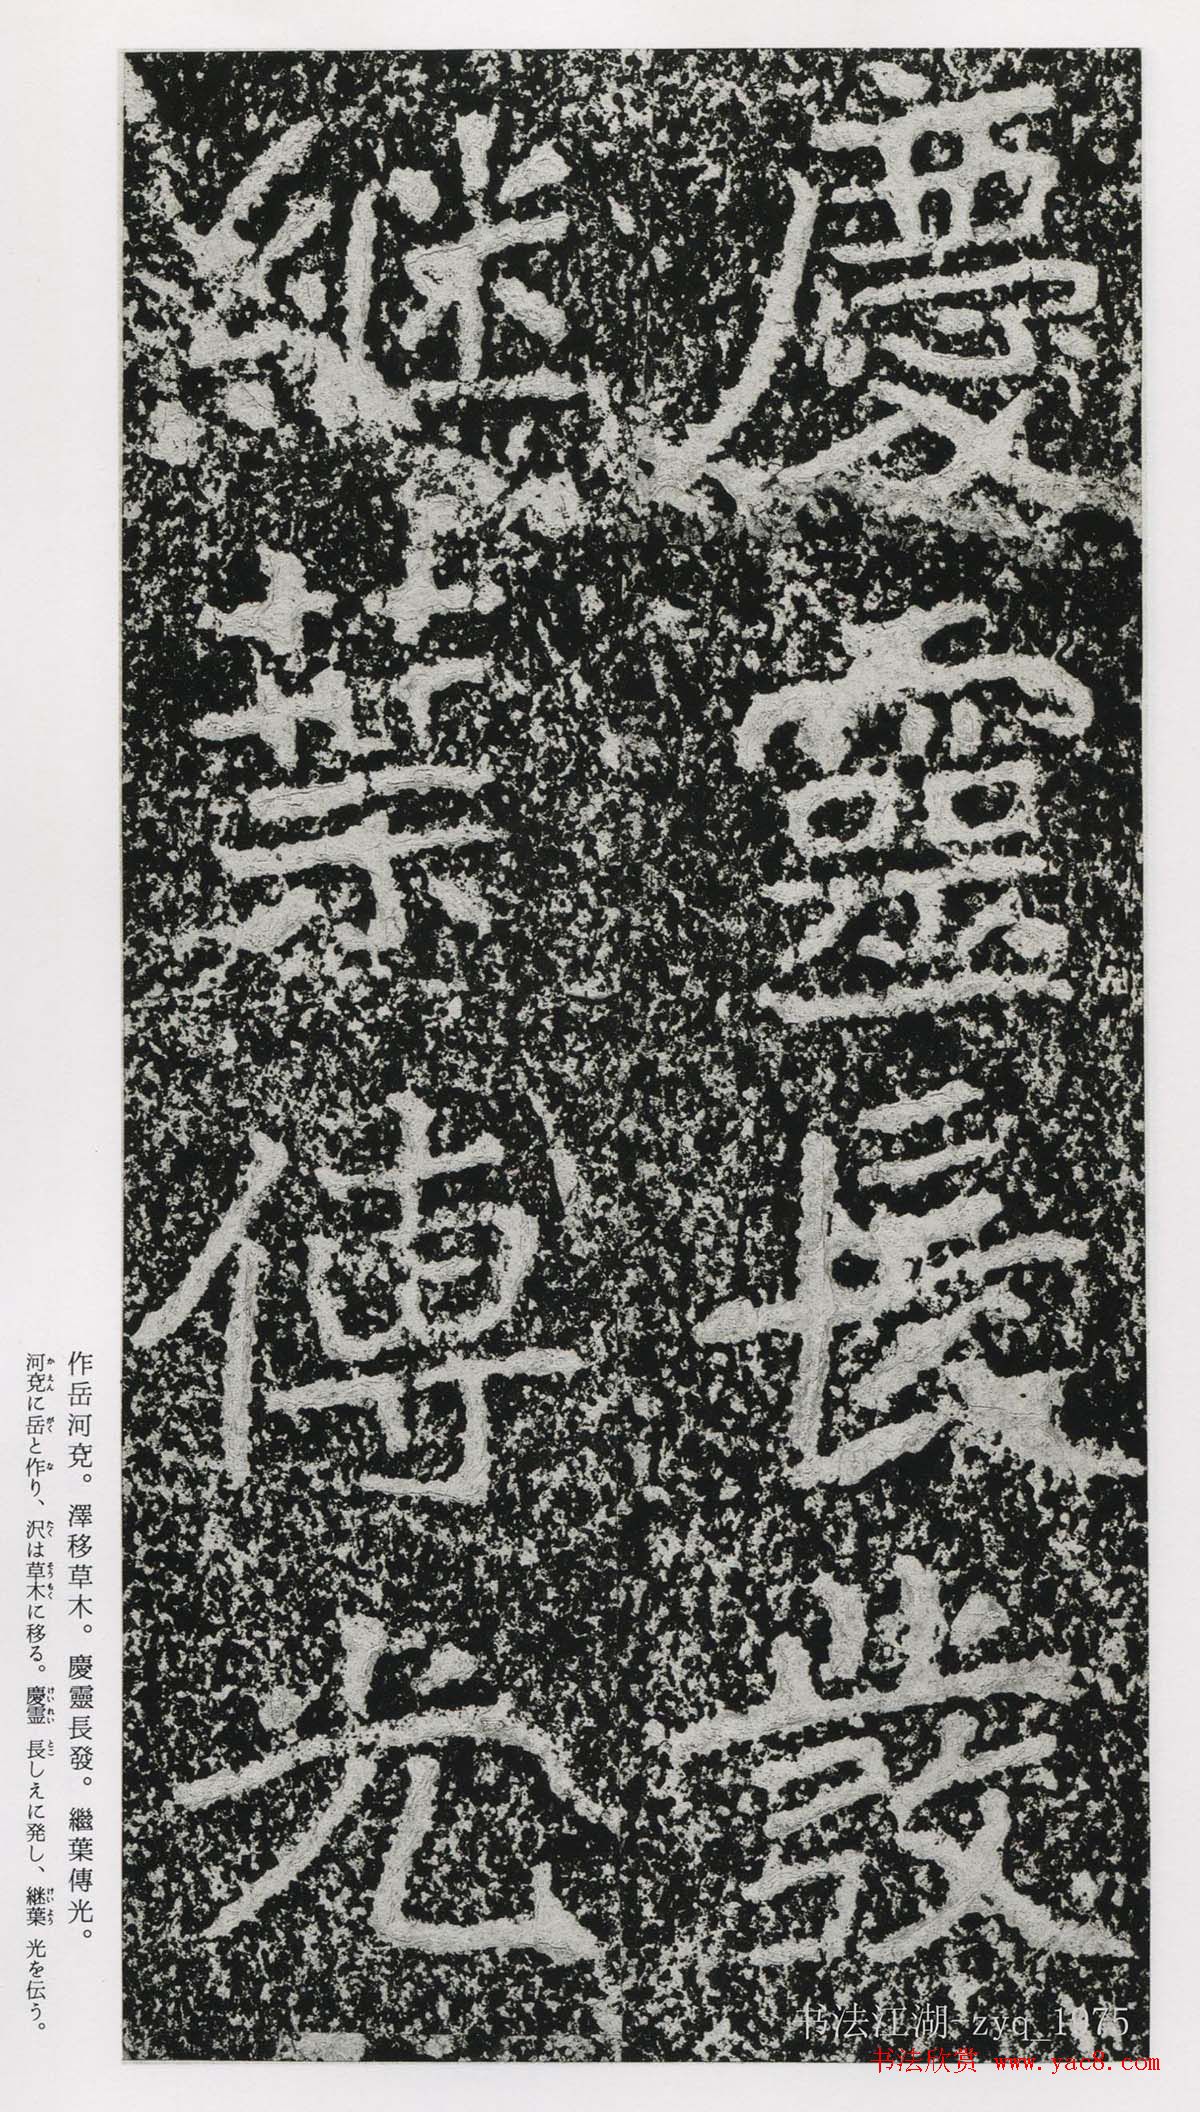 慶靈長發
継葉傳光
作岳河兗。澤移草木。慶靈長發。繼葉傳光。
河兗に岳と作り、沢は草木に移る。慶霊長しえに発し、継葉光を伝う。
书法江湖-zyq_1975
书法欣赏 www.yac8.com